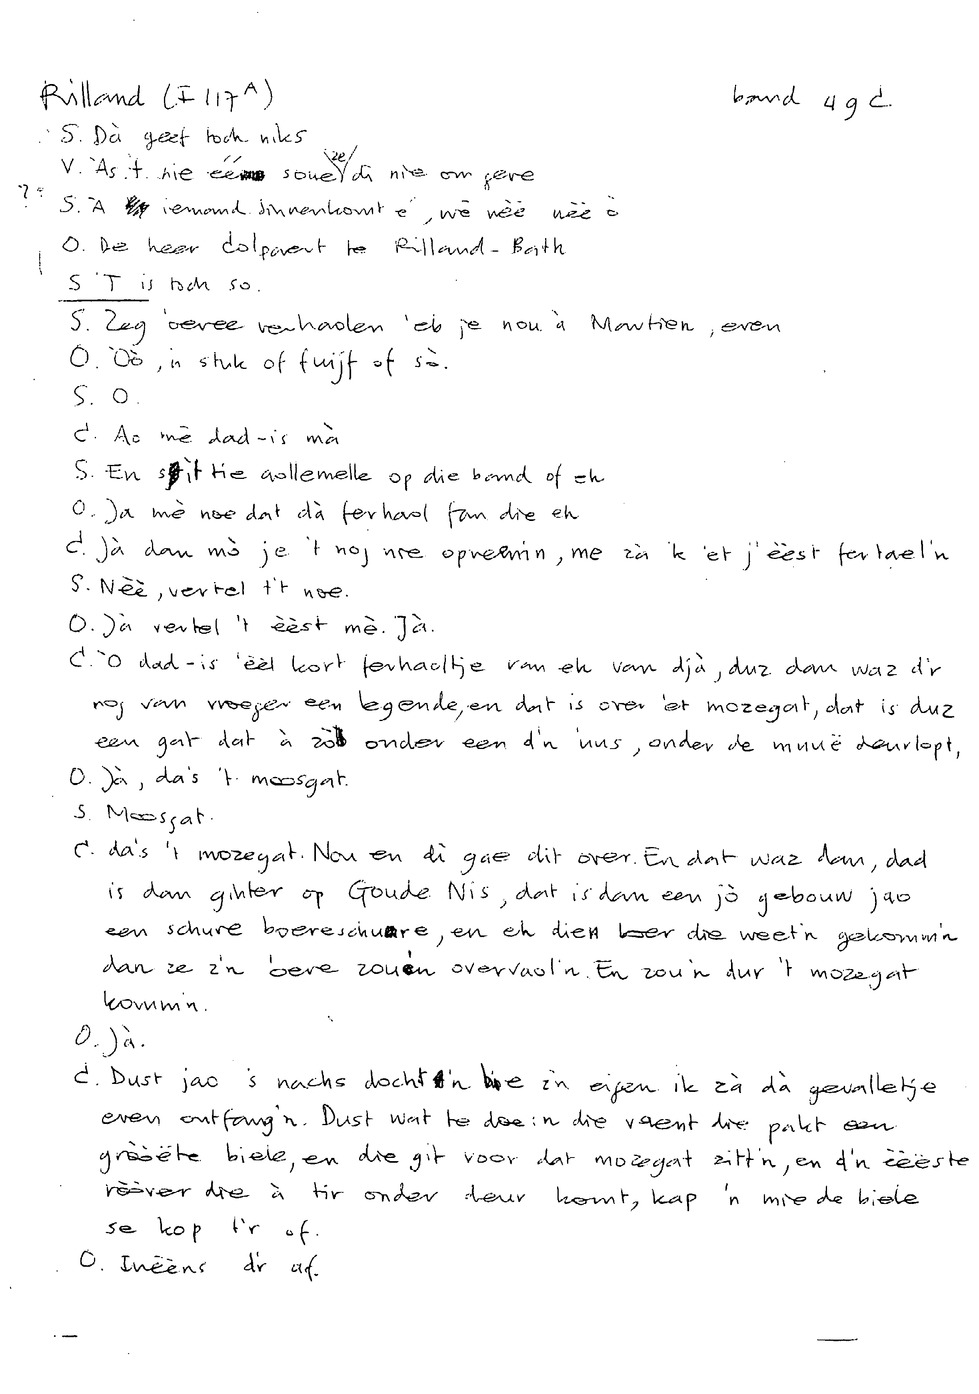 Rilland (I 117A) band 49 d.
S. Dà geef toch niks
V. 'As 't nie soue ze di nie om geve
?: S. 'A iemand binnenkomt é, wē nèè nèè ò
O. De heer Colpaert te Rilland-Bath
S 'T is toch so.
S. Zeg 'oevee verhaolen 'eb je nou à Mowtien, even
O. 'Oò, 'n stuk of fuijf of sò.
S. O.
C. Ao mē dad-is mà
S. En sit tie aollemelle op die band of eh
O. Ja mè noe dat dà ferhaol fan die eh
C. Jà dan mò je 't noj nie opneemin, me zà 'k 'et j'èèst fertael'n
S. Nèè, vertel t't noe.
O. Jà vertel 't èèst mè. Jà.
C. 'O dad-is 'èèl kort ferhaeltje van eh van djà, duz dan waz d'r
noj van vroeger een legende, en dat is over 'et mozegat, dat is duz
een gat dat à zò onder een d'n 'uus, onder de muuë deurlopt,
O. Jà, da's 't moosgat.
S. Moosgat.
C. da's 't mozegat. Nou en di gae dit over. En dat waz dan, dad
is dan ginter op Goude Nis, dat is dan een jò gebouw jao
een schure boereschure, en eh dien boer die weet'n gekomm'n
dan ze z'n 'oeve zouën overvaol'n. En zou'n dur 't mozegat
komm'n.
O. Jà.
C. Dust jao 's nachs docht 'n bie z'n eigen ik zà dà gevalletje
even ontfang'n. Dust wat te doe:n die vaent die pakt een
gròòëte biele, en die git voor dat mozegat zitt'n, en d'n èèëste
ròòver die à tir onder deur komt, kap 'n mie de biele
se kop t'r of.
O. Inèèns d'r af.